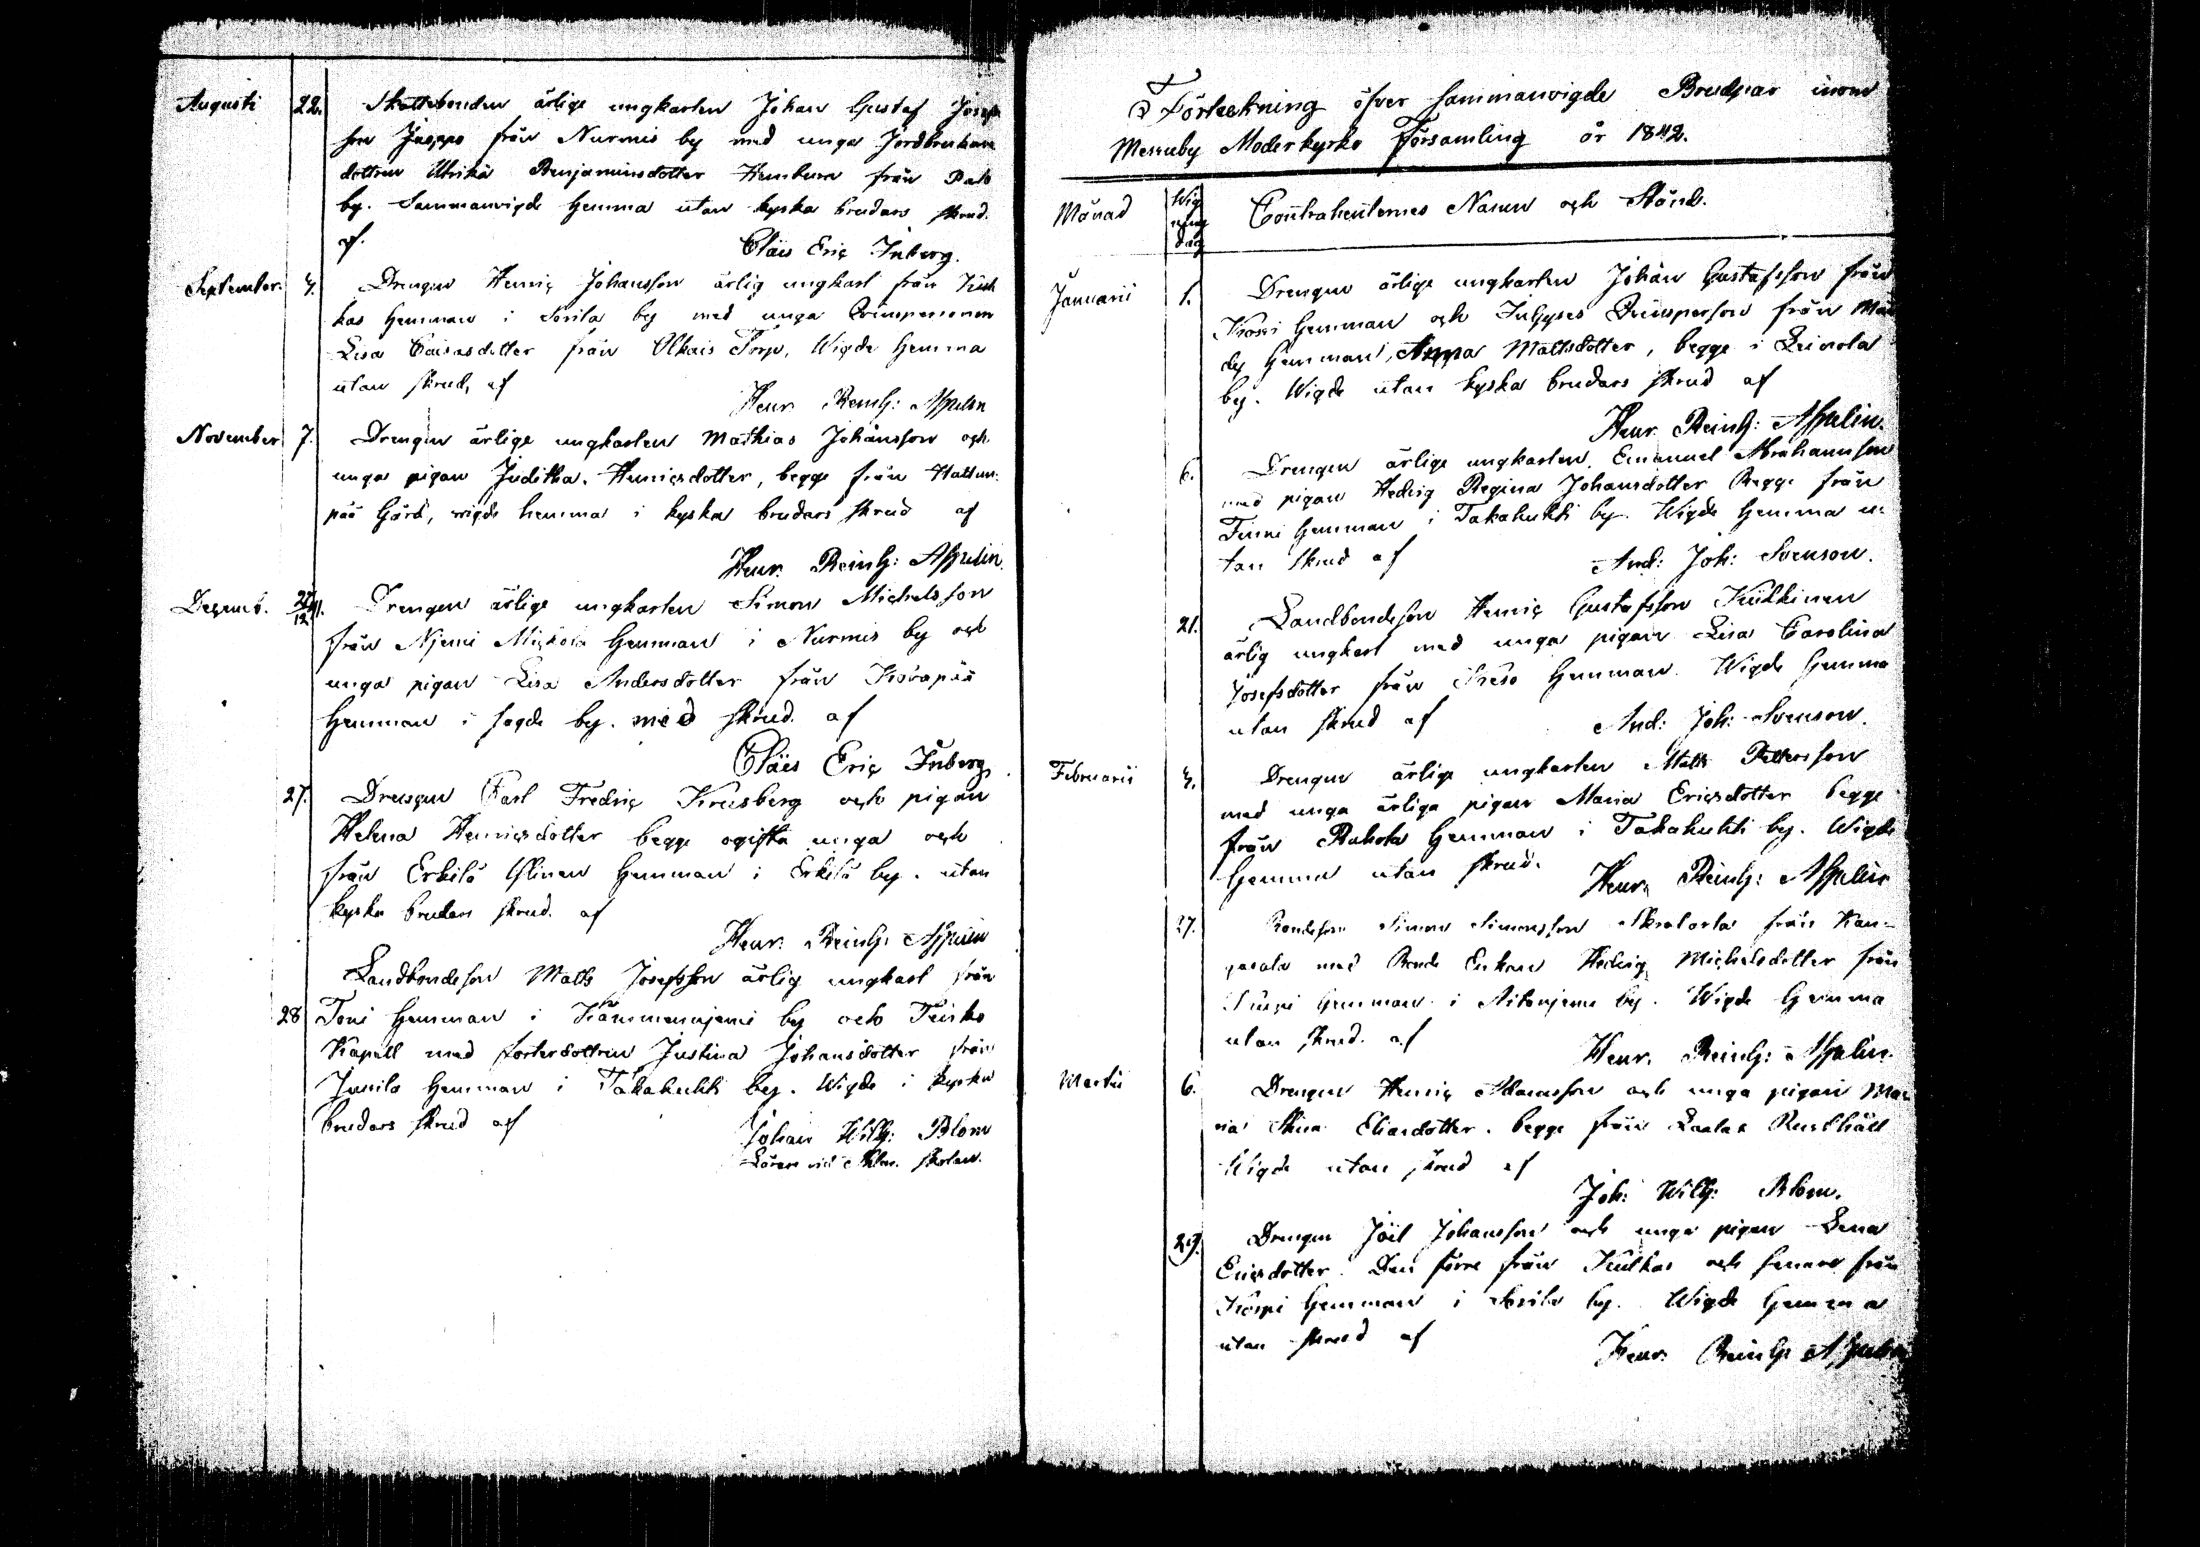 Augusti 22. Skattebonden ärlige ungkarlen Johan Gustaf Josefs
son Jaappo från Nurmis by med unga Jordbrukare
dottren Ulrika Benjaminsdotter Hemburn från Palo
by. Sammanvigde hemma utan kyska brudars skrud.
af.
Claës Eric Inberg.
September 4. Drengen Henric Johansson ärlig ungkarl från Kulk
kas hemman i Sorila by med unga Qvinspersonen
Lisa Caisasdotter från Olkais Torp, Wigde hemma
utan skrud, af
Henr. Reinh: Aspelin
November 7. Drengen ärlige ungkarlen Mathias Johansson och
unga pigan Juditha Henricsdotter, begge från Hattan-
pää Gård, wigde hemma i kyska brudars skrud af
Henr. Reinh: Aspelin.
Decemb. Drengen ärlige ungkarlen Simon Michelsson
från Njemi Mickola hemman i Nurmis by och
unga pigan Lisa Andersdotter från Kovapää
hemman i sagde by. med skrud. af
Claës Eric Inberg.
27. Drengen Carl Fredric Krusberg och pigan
Helena Henricsdotter begge ogifta unga och
från Erkilä Ylinen hemman i Erkilä by. utan
kyska brudars skrud. af
Henr. Reinh: Aspelin
Landbondeson Matts Josefsson ärlig ungkarl från
28 Toni hemman i Kämmenniemi by och Teisko
Kapell med fosterdottren Justina Johansdotter från
Junila hemman i Takahuhti by. Wigde i kyska
brudars skrud af
Johan Wilh: Blom
Läraren vid skolan.
Förteckning öfver sammanvigde Brudpar inom
Messuby Moderkyrko Församling år 1842.
Månad Wig
nings
dag Contrahenternes Namn och Stånd.
Januarii 1. Drengen ärlige ungkarlen Johan Gustafsson från
Kossi hemman och Inhyses Qvinsperson från
hemman, Anna Mattsdotter, begge i Leinola
by. Wigde utan kyska brudars skrud af
Henr. Reinh: Aspelin.
6. Drengen ärlige ungkarlen Emanuel Abrahamsson
med pigan Hedvig Regina Johansdotter Begge från
hemman i Takahuhti by. Wigde hemma u-
tan skrud af
And: Joh: Svenson.
21. Landbondeson Henric Gustafsson Kulkkinen
ärlig ungkarl med unga pigan Lisa Carolina
Josefsdotter från hemman. Wigde hemma
utan skrud af
And: Joh: Svenson.
Februarii 4. Drengen ärlige ungkarlen Matts Pettersson
med unga ärliga pigan Maria Ericsdotter begge
från Ruhola hemman i Takahuhti by. Wigde
hemma utan skrud.
Henr. Reinh: Aspelin
27. Bondeson Simon Simonsson från Kan-
gasala med Bonde Enkan Hedvig Michelsdotter från
hemman i Aitoniemi by. Wigde hemma
utan skrud. af
Henr. Reinh: Aspelin.
Martii 6. Drengen Henric Adamsson och unga pigan Ma-
ria Stina Eliasdotter. begge från Laalax Rusthåll
Wigde utan skrud af
Joh: Wilh: Blom.
29. Drengen Joël Johansson och unga pigan Lena
Ericsdotter. Den förre från Kulkas och sednare från
hemman i Sorila by. Wigde hemma
utan skrud af
Henr. Reinh: Aspelin